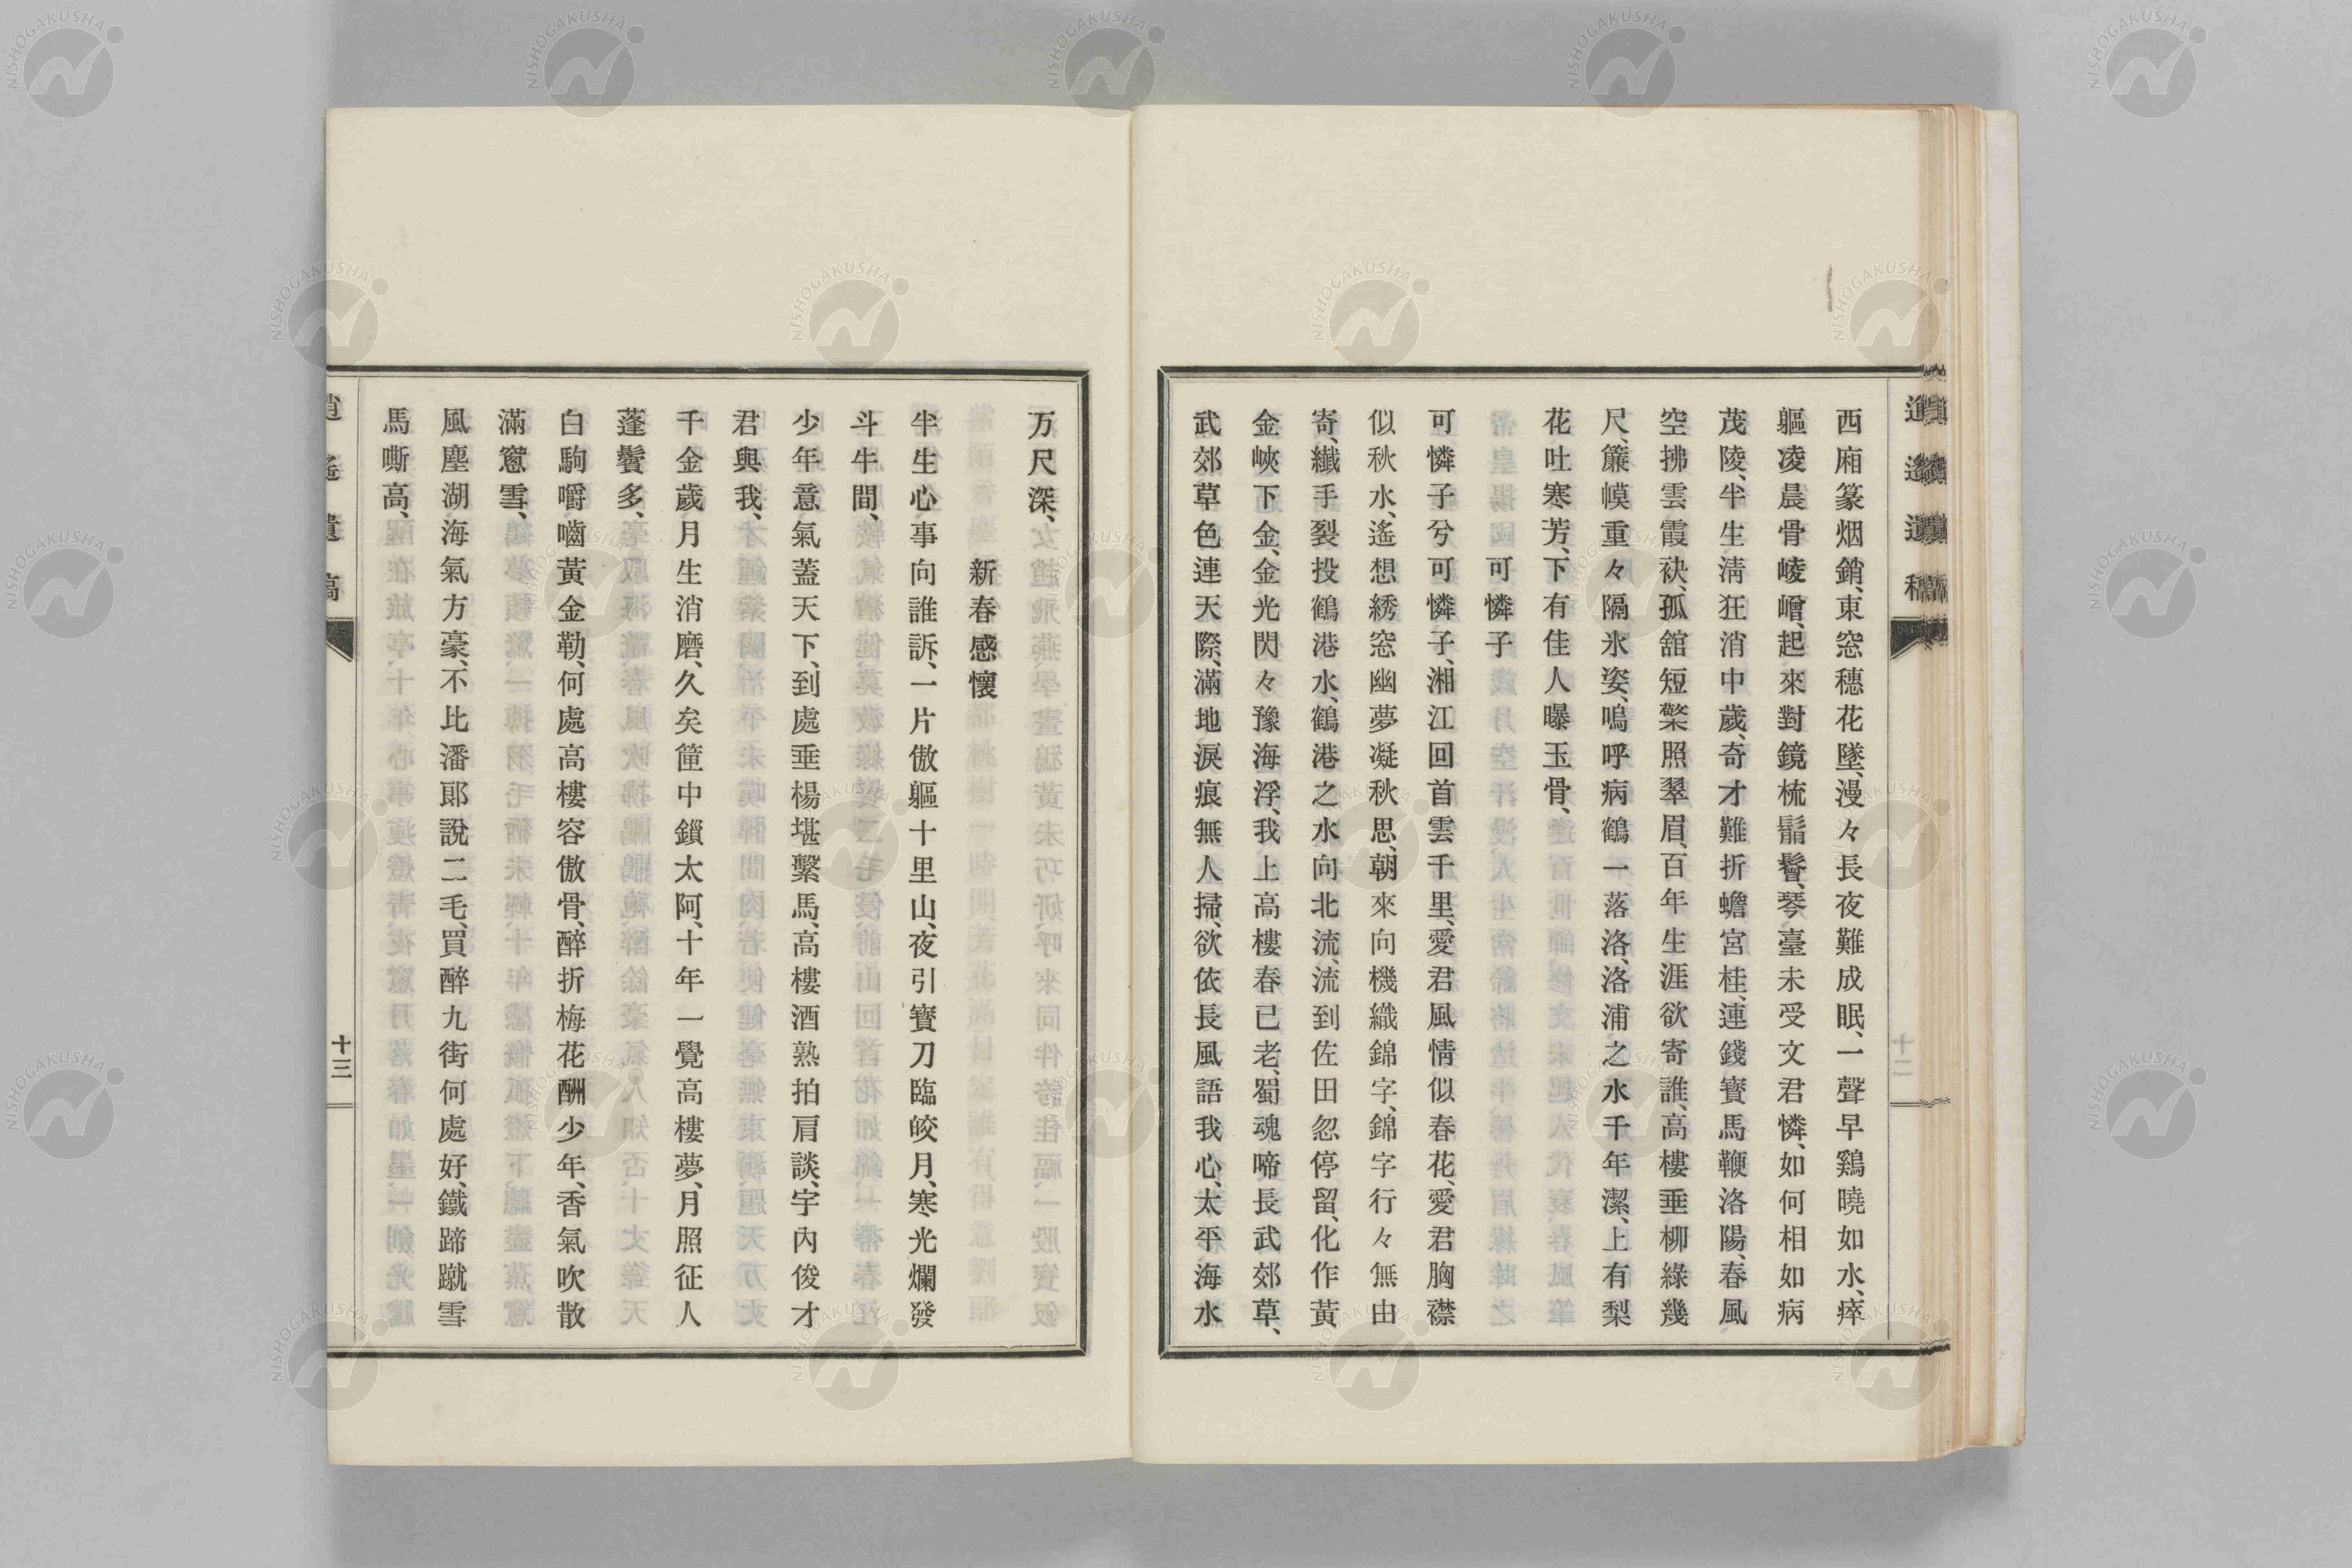 西廂篆烟銷、東窓穗花墜、漫々長夜難成眠、一聲早鷄曉如水、瘁
軀凌晨骨崚嶒、起來對鏡梳髯鬢、琴臺未受文君憐、如何相如病
茂陵、半生淸狂消中歲、奇才難折蟾宮桂、連錢寳馬鞭洛陽、春風
空拂雲霞袂、孤舘短檠照翠眉、百年生涯欲寄誰、高樓垂柳綠幾
尺、簾幙重々隔氷姿、嗚呼病鶴一落洛、洛浦之水千年潔、上有梨
花吐寒芳、下有佳人曝玉骨、
可憐子
可憐子兮可憐子、湘江回首雲千里、愛君風情似春花、愛君胸襟
似秋水、遙想綉窓幽夢凝秋思、朝來向機織錦字、錦字行々無由
寄、纖手裂投鶴港水、鶴港之水向北流、流到佐田忽停留、化作黃
金峽下金、金光閃々豫海浮、我上高樓春已老、蜀魂啼長武郊草、
武郊草色連天際、滿地淚痕無人掃、欲依長風語我心、太平海水
万尺深、
新春感懷
半生心事向誰訴、一片傲軀十里山、夜引寳刀臨皎月、寒光爛發
斗牛間、
少年意氣蓋天下、到處垂楊堪繫馬、高樓酒熟拍肩談、宇內俊才
君與我、
千金歲月生消磨、久矣篋中鎖太阿、十年一覺高樓夢、月照征人
蓬鬢多、
白駒嚼嚙黃金勒、何處高樓容傲骨、醉折梅花酬少年、香氣吹散
滿窻雪、
風塵湖海氣方豪、不比潘郞說二毛、買醉九街何處好、鐵蹄蹴雪
馬嘶高、
逍遙遺稿
十三